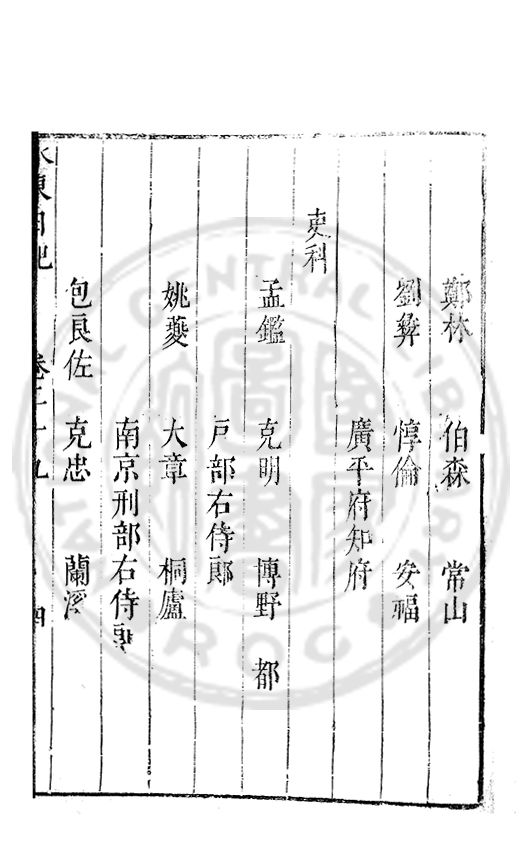 鄭林 伯森 常山
劉彝 惇倫 安福
廣平府知府
吏科
孟鑑 克明 博野 都
戶部右侍郎
姚夔 大章 桐廬
南京刑部右侍郎
包良佐 克忠 蘭溪
水東日記 卷二十九 四